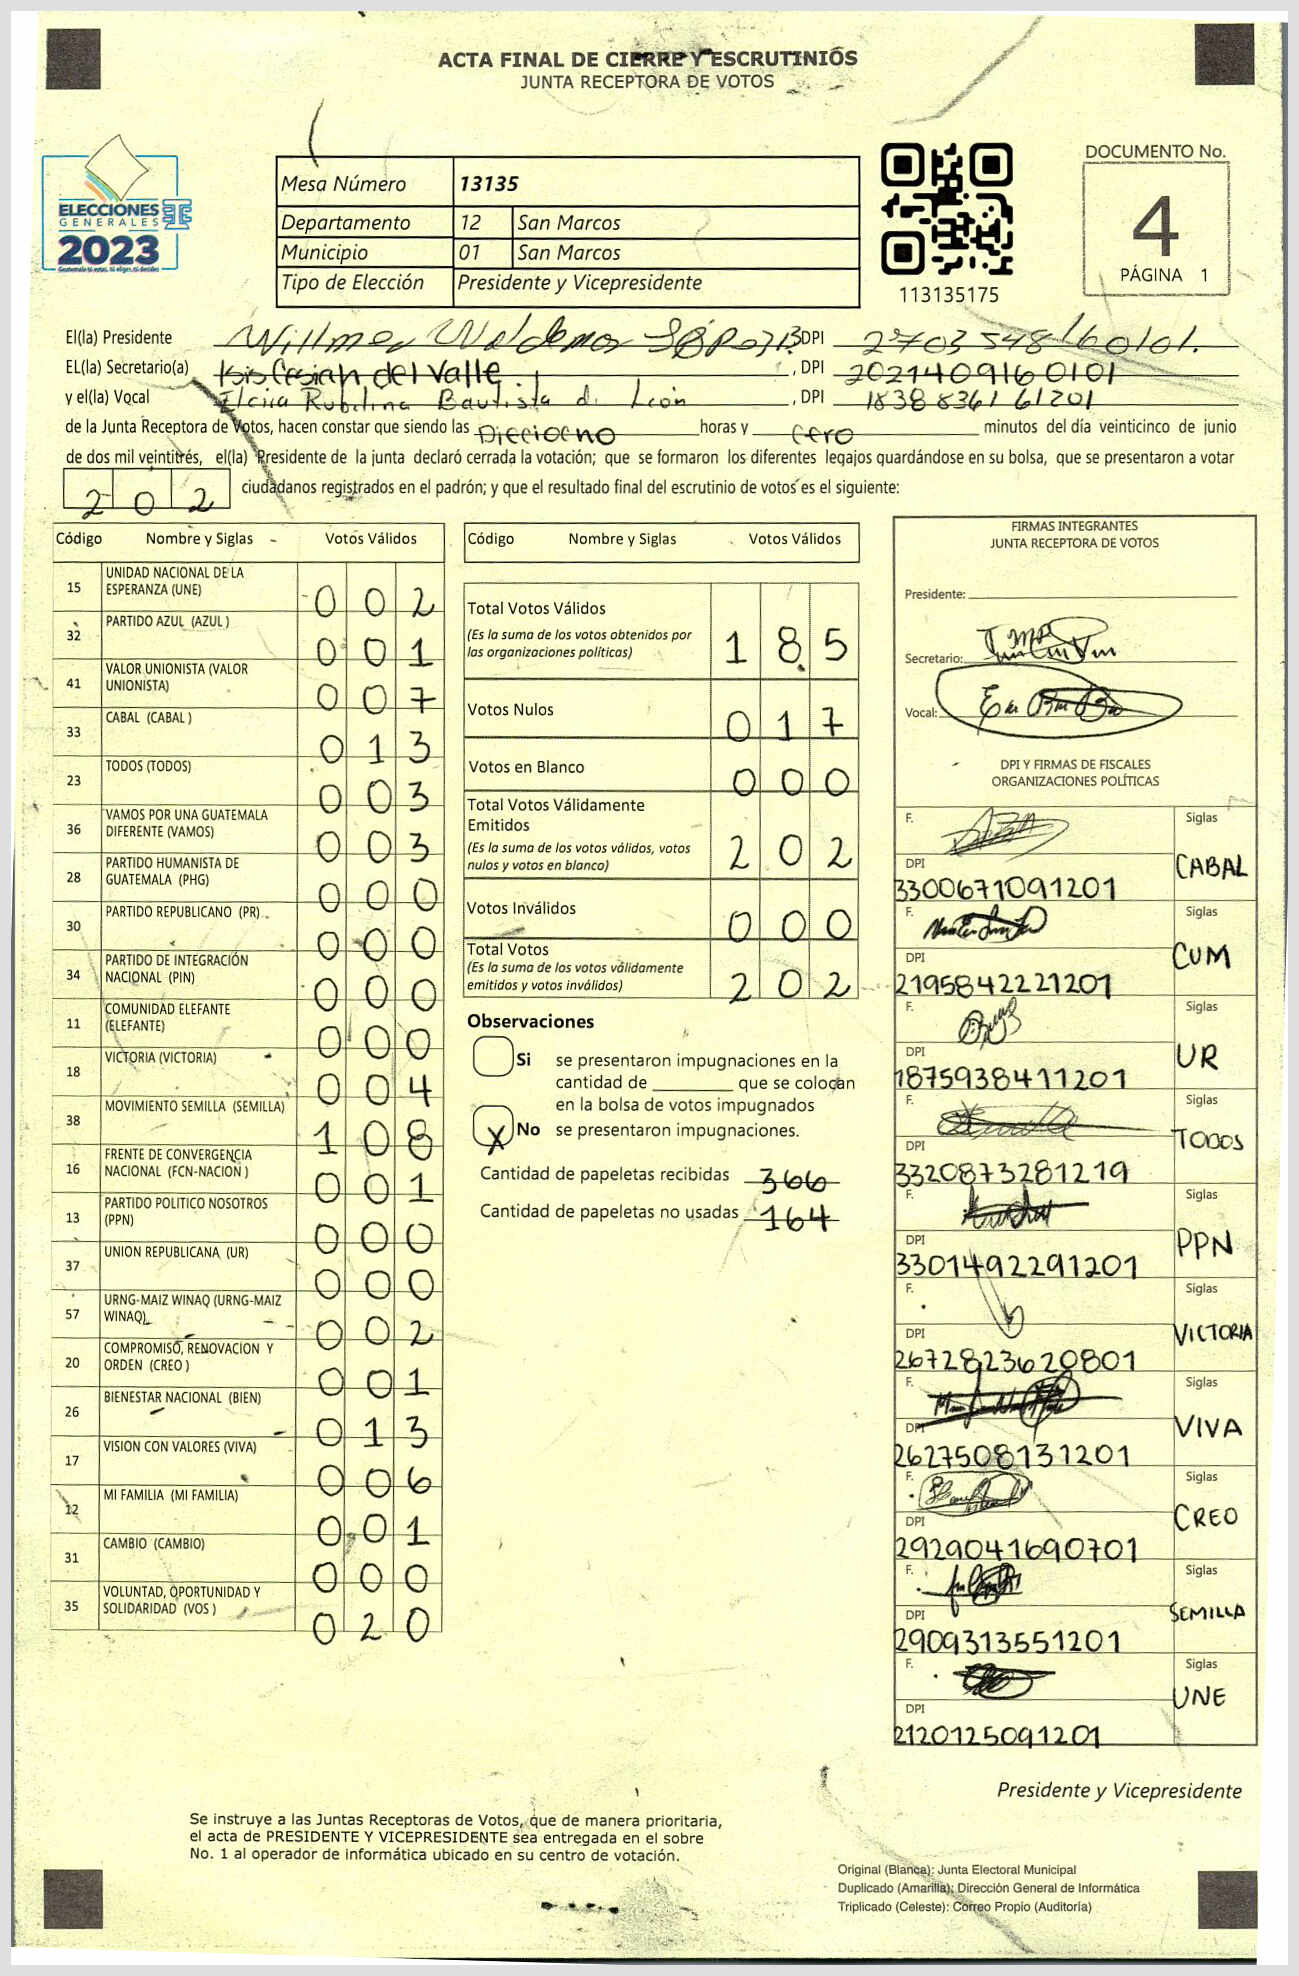 ACTA FINAL DE CIERRE Y ESCRUTINIOS
JUNTA RECEPTORA DE VOTOS
ELECCIONES
GENERALES
2023
Mesa Número 13135
Departamento 12 San Marcos
Municipio 01 San Marcos
Tipo de Elección Presidente y Vicepresidente
113135175
DOCUMENTO No.
4
PÁGINA 1
El(la) Presidente Willmer Waldemar DPI 2703 548160101.
EL(la) Secretario(a) Isis Cesiah del Valle , DPI 2021409160101
y el(la) Vocal Rubilina Bautista de León , DPI 1838836161201
de la Junta Receptora de Votos, hacen constar que siendo las Dieciocho horas y cero minutos del día veinticinco de junio
de dos mil veintitrés, el(la) Presidente de la junta declaró cerrada la votación; que se formaron los diferentes legajos guardándose en su bolsa, que se presentaron a votar
202 ciudadanos registrados en el padrón; y que el resultado final del escrutinio de votos es el siguiente:
Código Nombre y Siglas Votos Válidos
15 UNIDAD NACIONAL DE LA ESPERANZA (UNE) 002
32 PARTIDO AZUL (AZUL ) 001
41 VALOR UNIONISTA (VALOR UNIONISTA) 007
33 CABAL (CABAL ) 013
23 TODOS (TODOS) 003
36 VAMOS POR UNA GUATEMALA DIFERENTE (VAMOS) 003
28 PARTIDO HUMANISTA DE GUATEMALA (PHG) 000
30 PARTIDO REPUBLICANO (PR) 000
34 PARTIDO DE INTEGRACIÓN NACIONAL (PIN) 000
11 COMUNIDAD ELEFANTE (ELEFANTE) 000
18 VICTORIA (VICTORIA) 004
38 MOVIMIENTO SEMILLA (SEMILLA) 108
16 FRENTE DE CONVERGENCIA NACIONAL (FCN-NACION ) 001
13 PARTIDO POLITICO NOSOTROS (PPN) 000
37 UNION REPUBLICANA (UR) 000
57 URNG-MAIZ WINAQ (URNG-MAIZ WINAQ) 002
20 COMPROMISO, RENOVACION Y ORDEN (CREO ) 001
26 BIENESTAR NACIONAL (BIEN) 013
17 VISION CON VALORES (VIVA) 006
12 MI FAMILIA (MI FAMILIA) 001
31 CAMBIO (CAMBIO) 000
35 VOLUNTAD, OPORTUNIDAD Y SOLIDARIDAD (VOS ) 020
Código Nombre y Siglas Votos Válidos
Total Votos Válidos 185
(Es la suma de los votos obtenidos por
las organizaciones políticas)
Votos Nulos 017
Votos en Blanco 000
Total Votos Válidamente
Emitidos 202
(Es la suma de los votos válidos, votos
nulos y votos en blanco)
Votos Inválidos 000
Total Votos 202
(Es la suma de los votos válidamente
emitidos y votos inválidos)
Observaciones
Si se presentaron impugnaciones en la
cantidad de ________ que se colocan
en la bolsa de votos impugnados
X No se presentaron impugnaciones.
Cantidad de papeletas recibidas 366
Cantidad de papeletas no usadas 164
FIRMAS INTEGRANTES
JUNTA RECEPTORA DE VOTOS
Presidente:
Secretario:
Vocal:
DPI Y FIRMAS DE FISCALES
ORGANIZACIONES POLÍTICAS
F. Siglas
DPI CABAL
3300671091201
F. Siglas
DPI CUM
2195842221201
F. Siglas
DPI UR
1875938411201
F. Siglas
DPI TODOS
3320873281219
F. Siglas
DPI PPN
3301492291201
F. Siglas
DPI VICTORIA
2672823620801
F. Siglas
DPI VIVA
2627508131201
F. Siglas
DPI CREO
2929041690701
F. Siglas
DPI SEMILLA
2909313551201
F. Siglas
DPI UNE
2120125091201
Presidente y Vicepresidente
Se instruye a las Juntas Receptoras de Votos, que de manera prioritaria,
el acta de PRESIDENTE Y VICEPRESIDENTE sea entregada en el sobre
No. 1 al operador de informática ubicado en su centro de votación.
Original (Blanca): Junta Electoral Municipal
Duplicado (Amarilla): Dirección General de Informática
Triplicado (Celeste): Correo Propio (Auditoría)